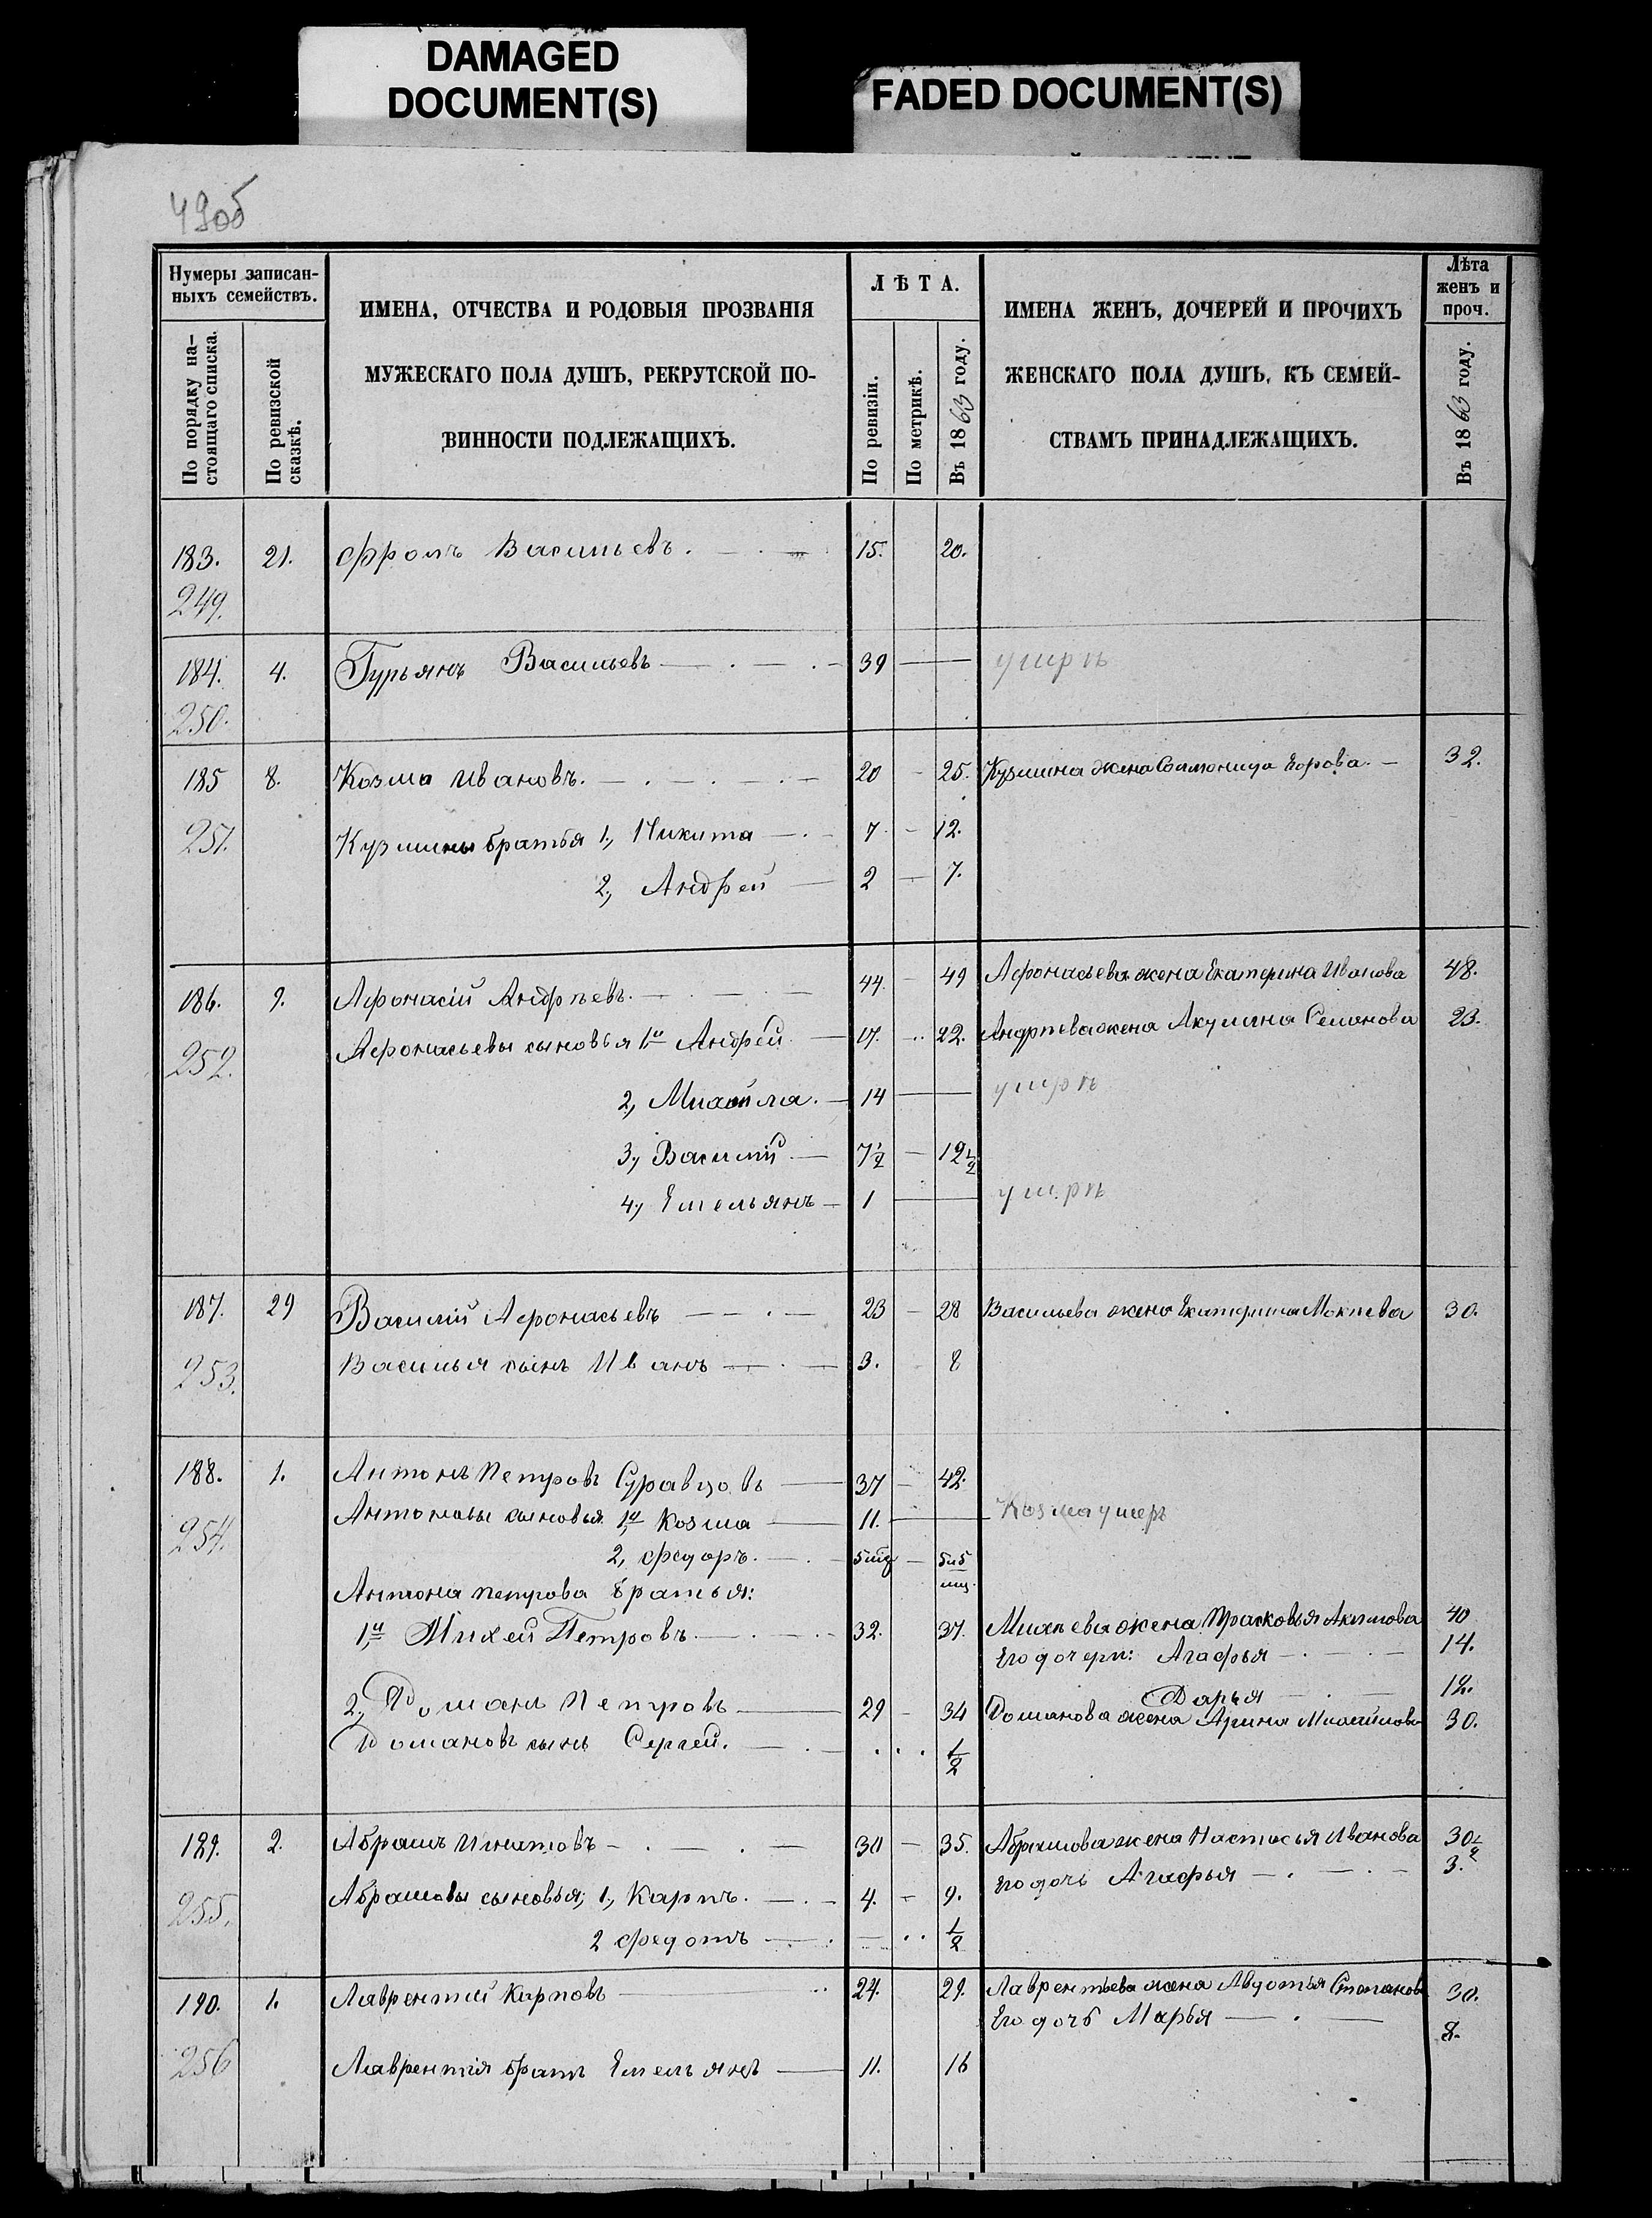 DAMAGED
DOCUMENT(S)
FADED DOCUMENT(S)
49об
Нумеры записан-
ныхъ семействъ.
По порядку на-
стоящаго списка.
По ревизской
сказкѣ.
ИМЕНА, ОТЧЕСТВА И РОДОВЫЯ ПРОЗВАНІЯ
МУЖЕСКАГО ПОЛА ДУШЪ, РЕКРУТСКОЙ ПО-
ВИННОСТИ ПОДЛЕЖАЩИХЪ.
ЛѢТА.
По ревизіи.
По метрикѣ.
Въ 1863 году.
ИМЕНА ЖЕНЪ, ДОЧЕРЕЙ И ПРОЧИХЪ
ЖЕНСКАГО ПОЛА ДУШЪ, КЪ СЕМЕЙ-
СТВАМЪ ПРИНАДЛЕЖАЩИХЪ.
Лѣта
женъ и
проч.
Въ 1863 году.
183. 21. Фролъ Васильевъ. 15. 20.
249.
184. 4. Гурьянъ Васильевъ 39 умръ
250.
185 8. Козма Ивановъ. 20 25. Кузмина жена Соломонида Егорова 32.
251. Кузмины братья 1, Никита 7 12.
2, Андрей 2 7.
186. 9. Афонасій Андрѣевъ. 44 49 Афонасьева жена Екатерина Иванова 48.
252. Афонасьевы сыновья 1й Андрей 17. 22. Андрѣева жена Акулина Семенова 23.
2, Михайла. 14 умръ
3, Василій 7½ 12½
4, Емельянъ 1 умръ
187. 29 Василій Афонасьевъ 23 28 Васильева жена Екатерина Мокѣева 30.
253. Василья сынъ Иванъ 3. 8
188. 1. Антонъ Петровъ Суравцовъ 37 42.
254. Антоновы сыновья 1й Козма 11. Козма умеръ
2, Федоръ. 5 мц 5 и 5 мц.
Антона Петрова братья:
1й Михей Петровъ 32. 37. Михѣева жена Прасковья Акимова 40
Его дочери: Агафья 14.
Дарья 12.
2, Романъ Петровъ 29 34 Романова жена Арина Михайлова 30.
Романовъ сынъ Сергей. ½
189. 2. Абрамъ Игнатовъ 30 35. Абрамова жена Настасья Иванова 30½
255. Абрамовы сыновья; 1, Карпъ. 4. 9. Его дочь Агафья 3.
2 Федотъ ½
190. 1. Лаврентій Карповъ 24. 29. Лаврентьева жена Авдотья Степанова 30.
Его дочь Марья 8.
256 Лаврентія братъ Емельянъ 11. 16